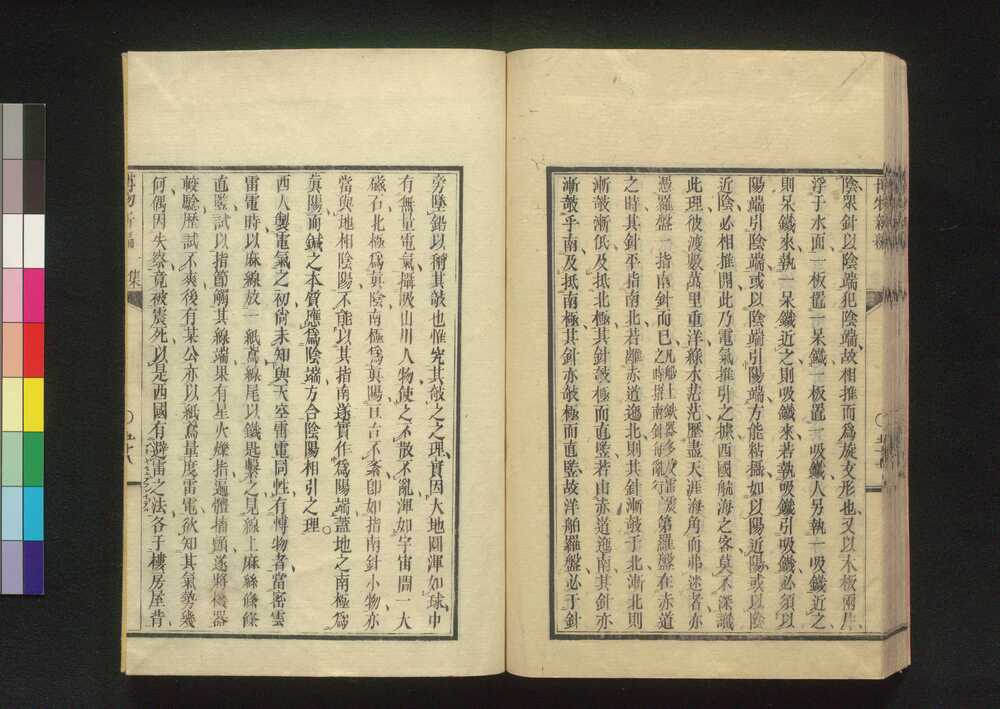 陰眾針以陰端犯陰端故相推而爲旋文形也又以木板兩片
浮于水面一板置一呆鐵一板置一吸鐵人另執一吸鐵近之
則呆鐵來執一呆鐵近之則吸鐵來若執吸鐵引吸鐵必須以
陽端引陰端或以陰端引陽端方能粘攝如以陽近陽或以陰
近陰必相推開此乃電氣推引之據西國航海之客莫不深識
此理彼渡數萬里重洋綠水茫茫歷盡天涯海角而弗迷者亦
憑羅盤一指南針而已凡船上鐵器多及雷震之時指南針每亂行第羅盤在赤道
之時其針平指南北若離赤道迤北則其針漸敧于北漸北則
漸敧漸低及抵北極其針敧極而直豎若由赤道迤南其針亦
漸敧乎南及抵南極其針亦敧極而直豎故洋舶羅盤必于針
旁墜錯以稱其敧也惟究其敧之之理實因大地圓渾如球中
有無量電氣攝吸山川人物使之不散不亂渾如宇宙間一大
磁石北極爲真陰南極爲真陽亘古不紊卽如指南針小物亦
當與地相陰陽不能以其指南遂實作爲陽端蓋地之南極爲
真陽而鍼之本質應爲陰端方合陰陽相引之理。
西人製電氣之初尚未知與天空雷電同性有博物者當密雲
雷電時以麻線放一紙鳶線尾以鐵匙繫之見線上麻絲條條
直豎試以指節觸其線端果有星火爍指遍體搐顫遂將機器
較驗歷試不爽後有某公亦以紙鳶量度雷電欲知其氣勢幾
何偶因失察竟被震死以是西國有避雷之法各于樓房屋背
博物新編
一集